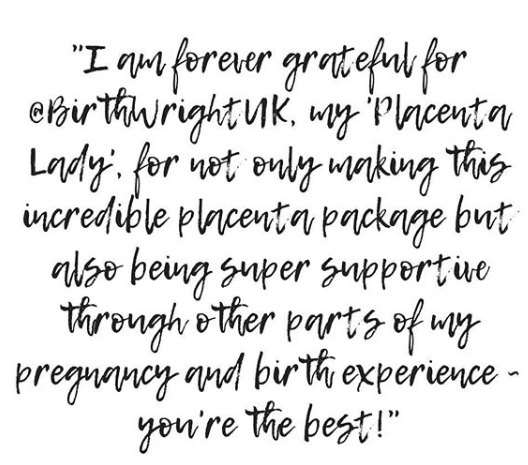 "I am forever grateful for
@BirthWrightUK, my 'Placenta
Lady', for not only making this
incredible placenta package but
also being super supportive
through other parts of my
pregnancy and birth experience -
you're the best!"